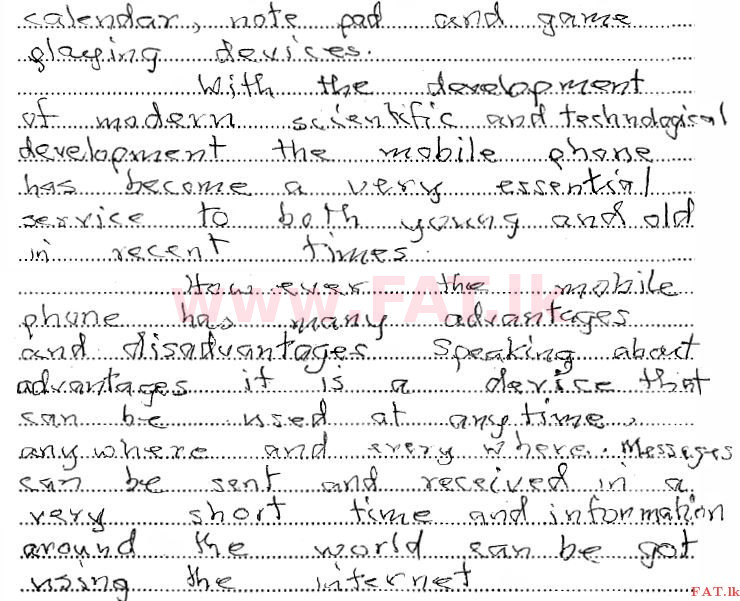 calendar, note pad and game
playing devices.
With the development
of modern scientific and technological
development the mobile phone
has become a very essential
service to both young and old
in recent times.
How ever the mobile
www.FAT.lk
phone has many advantages
and disadvantages Speaking about
advantages it is a device that
can be used at any time,
any where and every where. Messages
can be sent and received in a
very short time and information
around the world can be got
using the internet
FAT.lk